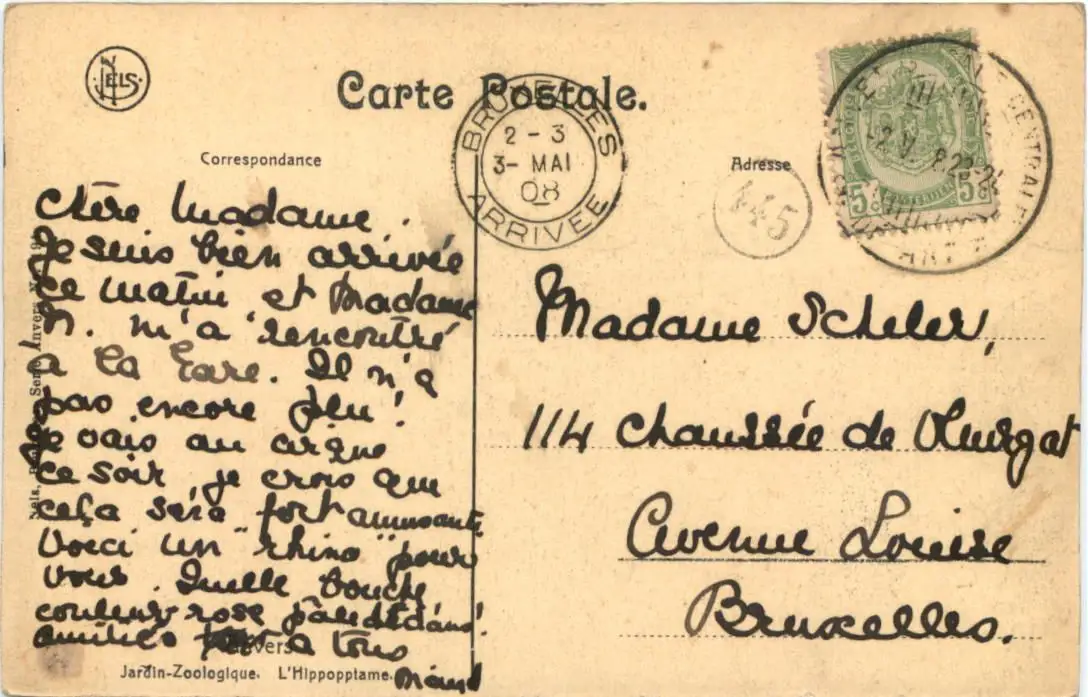 NELS
Carte Postale.
Correspondance
Adresse
BRUXELLES
2 - 3
3- MAI
08
ARRIVÉE
445
CENTRALE
5c 5c
Chère Madame.
Je suis bien arrivée
ce matin et Madame
N. m'a rencontré
a la Gare. Il n'a
pas encore plu!
je vais au cirque
ce soir je crois que
cela sera fort amusante
Voici un "rhino" pour
vous. Quelle bouche
couleur rose pâle dedans!
amitiés a tous
Maud
Madame Scheler,
114 Chaussée de Vlurgat
Avenue Louise
Bruxelles.
Anvers
Jardin-Zoologique. L'Hippopptame.
Nels, Serie Anvers